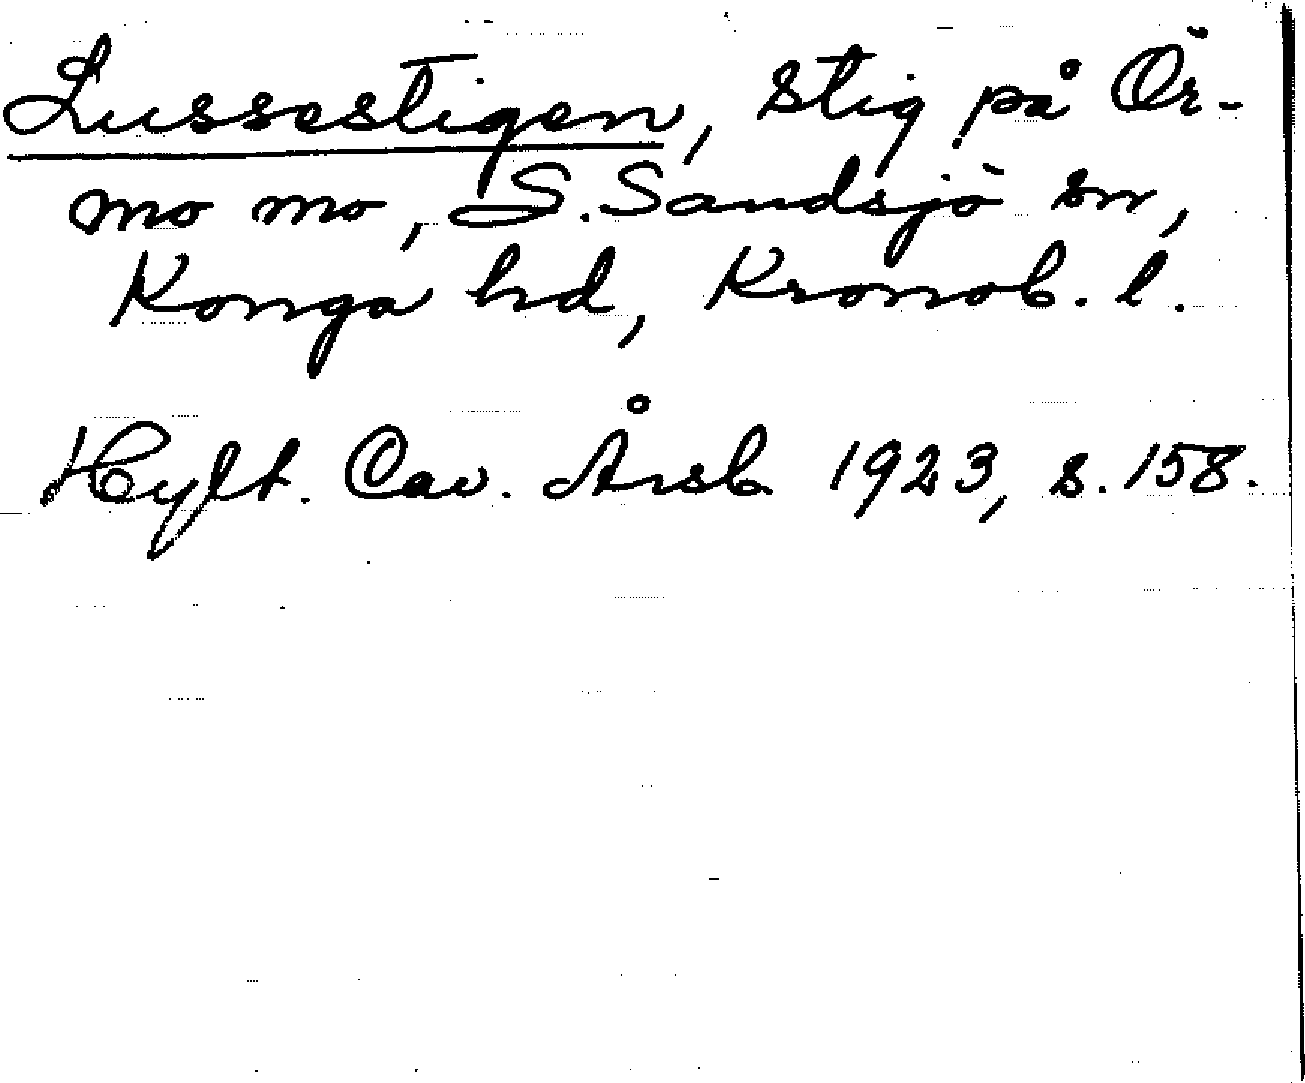 Lussestigen, stig på Ör-
mo mo, S. Sandsjö sn,
Konga hd, Kronob. l.
Hylt. Cav. Årsb 1923, s. 158.